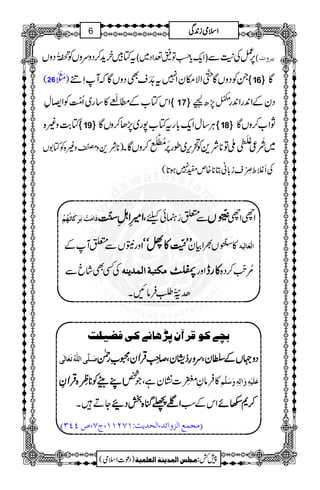 6
اسلامی زندگی
پر عمل کی نیت سے (ایک یا حسبِ توفیق تعداد میں) یہ کتابیں خرید کر دوسروں کو تحفۃً دوں
گا {16} جن کو دوں گا حتَّی الامکان انہیں یہ ہَدَف بھی دوں گا کہ آپ اتنے (مَثَلًا 26)
دن کے اندر اندر مکمل پڑھ لیجئے {17} اس کتاب کے مطالَعے کا سارا ثواب
کروں گا {18} ہر سال ایک بار یہ کتاب پوری پڑھا کروں گا {19} کتابت وغیرہ
میں شَرعی غلطی ملی تو ناشرین کو تحریری طور پر مُطَّلع کروں گا۔
کی اغلاط صرف زبانی بتانا خاص مفید نہیں ہوتا)
اچھی اچھی نیتوں سے متعلق رہنمائی کیلئے، امیرِ اہلسنّت دامت برکاتہم العالیہ
کا سنتوں بھرا بیان ”نیت کا پھل“ اور نیتوں سے متعلق آپ کے
مُرتَّب کردہ کارڈ اور پمفلٹ مکتبۃ المدینہ کی کسی بھی شاخ سے
ھدیّۃً طلب فرمائیں۔
بچے کو قرآن پڑھانے کی فضیلت
دوجہاں کے سلطان، سرورِ ذیشان، صاحبِ قرآن، محبوبِ رحمٰن صَلَّی اللہُ تَعَالٰی
عَلَیْہِ وَاٰلِہٖ وَسَلَّم کا فرمانِ مغفرت نشان ہے، جو شخص اپنے بیٹے کو ناظرہ قرآنِ
کریم سکھائے اس کے سب اگلے پچھلے گناہ بخش دیئے جاتے ہیں۔
(مجمع الزوائد، الحدیث: ١١٢٧١، ج٧، ص ٣٤٤)
پیش کش: مجلس المدینۃ العلمیۃ (دعوتِ اسلامی)